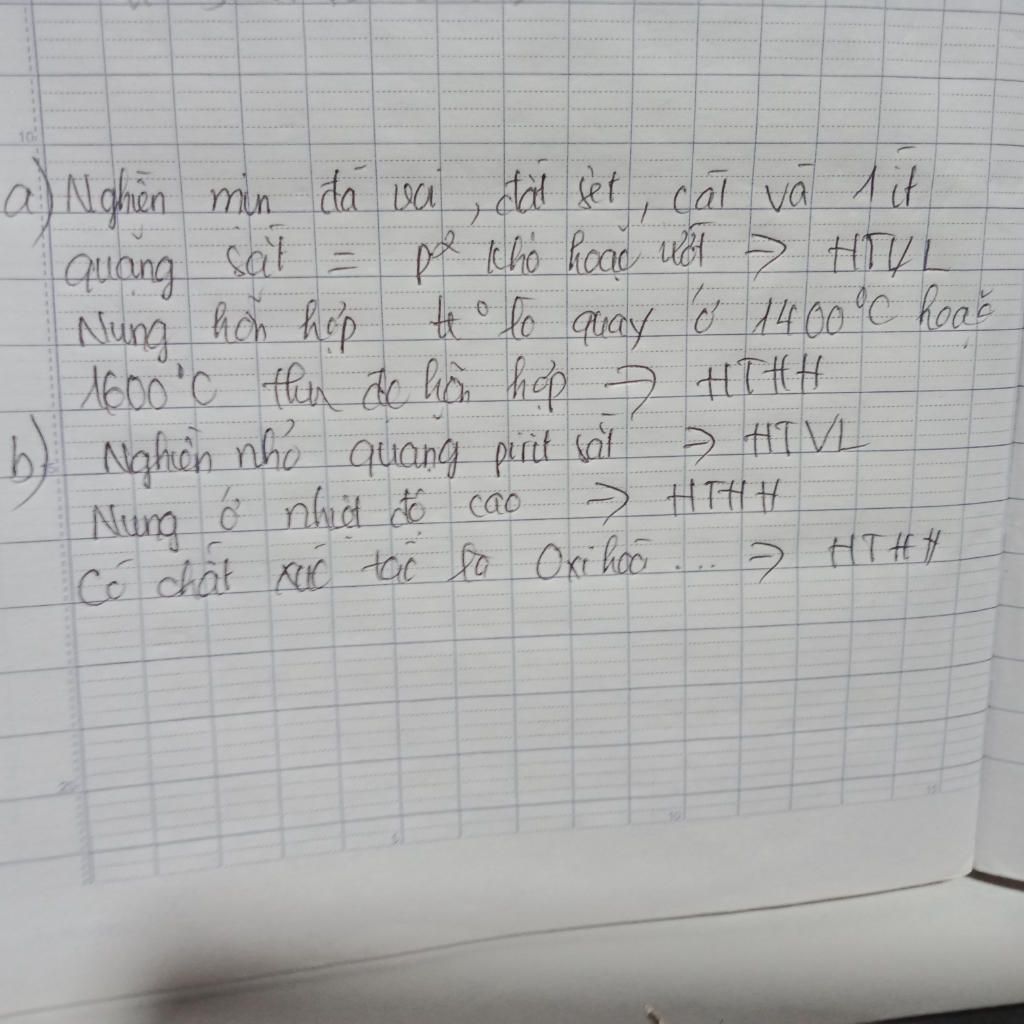 a) Nghiền mịn đá vôi, đất sét, cát và 1 ít
quặng sắt = p² khô hoặc ướt => HTVL
Nung hỗn hợp tº lò quay ở 1400°C hoặc
1600°C thu đc hỗn hợp => HTHH
b) Nghiền nhỏ quặng pirit sắt => HTVL
Nung ở nhiệt độ cao => HTHH
Có chất xúc tác to Oxi hoá ... => HTHH
10
20
5
10
15